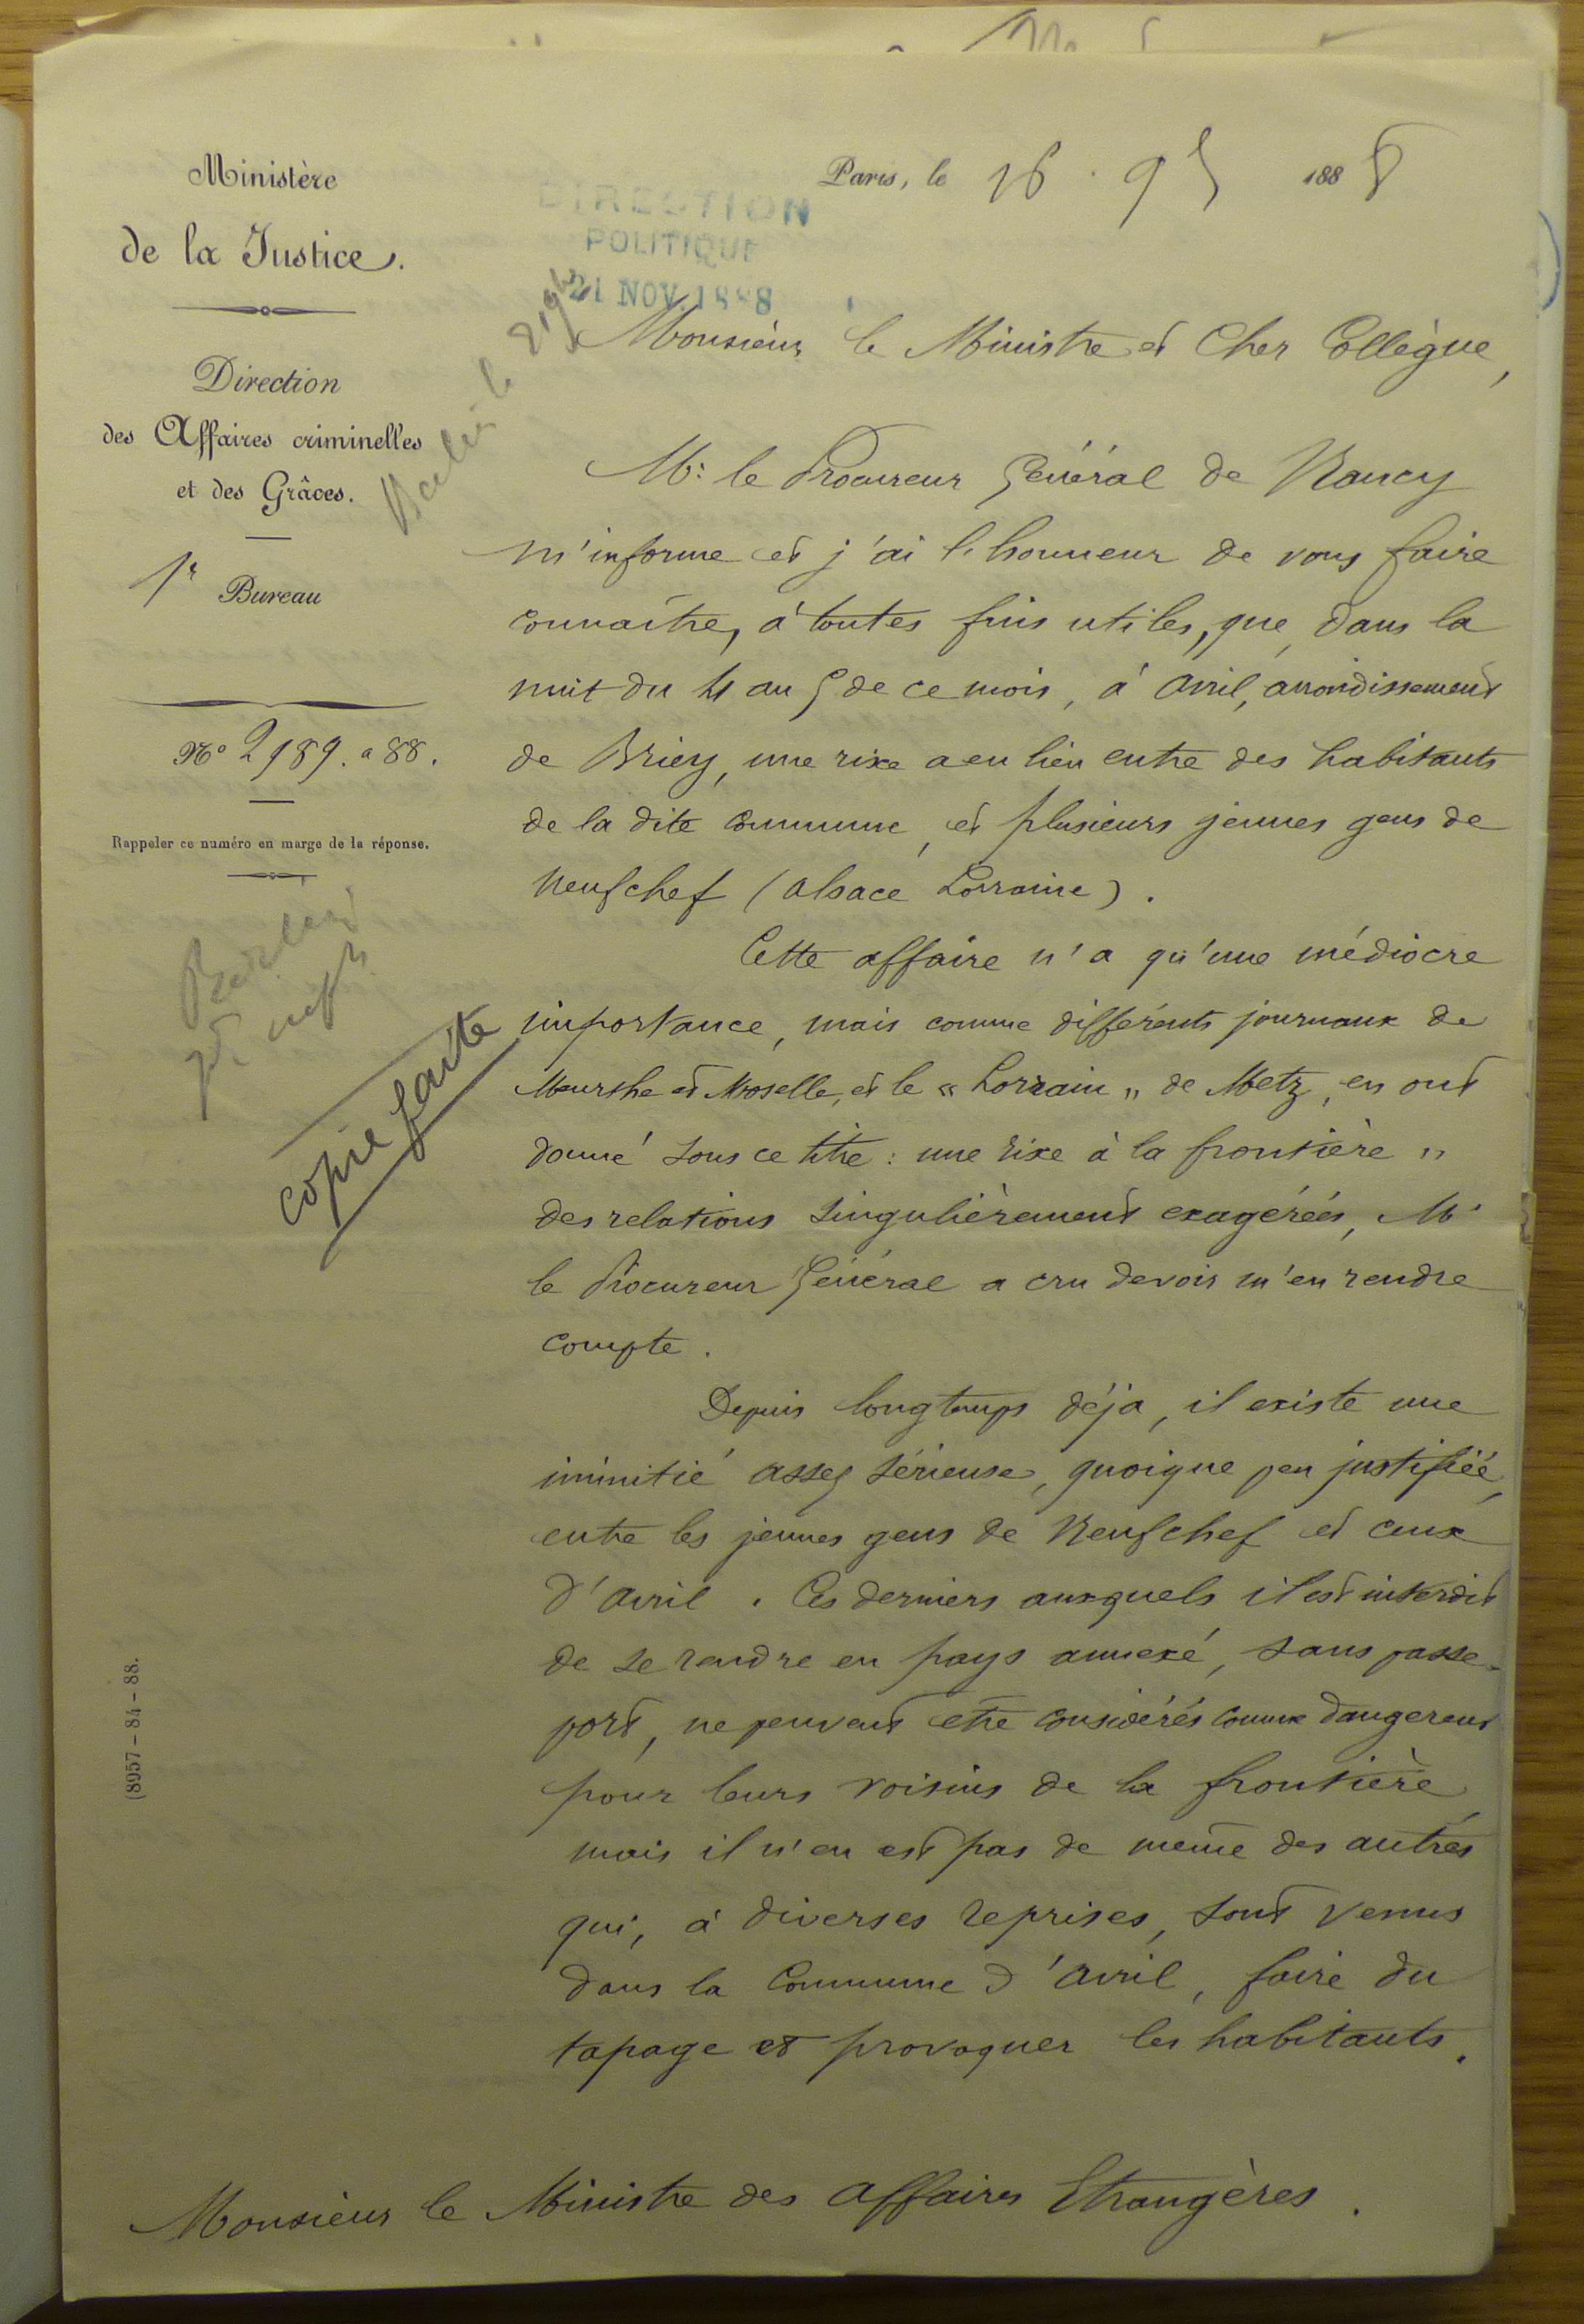 Ministère
de la Justice.
Direction
des Affaires criminelles
et des Grâces.
1r Bureau
No 2189. a 88.
Rappeler ce numéro en marge de la réponse.
copie faite
(8957-84-88.
Paris, le 16 . 9b 1888
DIRECTION
POLITIQUE
21 NOV. 1888
Monsieur le Ministre et Cher Collègue,
Mr. le Procureur Général de Nancy
m'informe et j'ai l'honneur de vous faire
connaître, à toutes fins utiles, que, dans la
nuit du 4 au 5 de ce mois, à Avril, arrondissement
de Briey, une rixe a eu lieu entre des habitants
de la dite commune, et plusieurs jeunes gens de
Neufchef (Alsace Lorraine).
Cette affaire n'a qu'une médiocre
importance, mais comme différents journaux de
Meurthe et Moselle, et le "Lorrain" de Metz, en ont
donné sous ce titre : une rixe à la frontière "
des relations singulièrement exagérées, Mr
le Procureur Général a cru devoir m'en rendre
compte.
Depuis longtemps déjà, il existe une
inimitié assez sérieuse, quoique peu justifiée,
entre les jeunes gens de Neufchef et ceux
d'Avril. Ces derniers auxquels il est interdit
de se rendre en pays annexé, sans passe-
port, ne peuvent être considérés comme dangereux
pour leurs voisins de la frontière,
mais il n'en est pas de même des autres
qui, à diverses reprises, sont venus
dans la Commune d'Avril, faire du
tapage et provoquer les habitants.
Monsieur le Ministre des Affaires Etrangères.